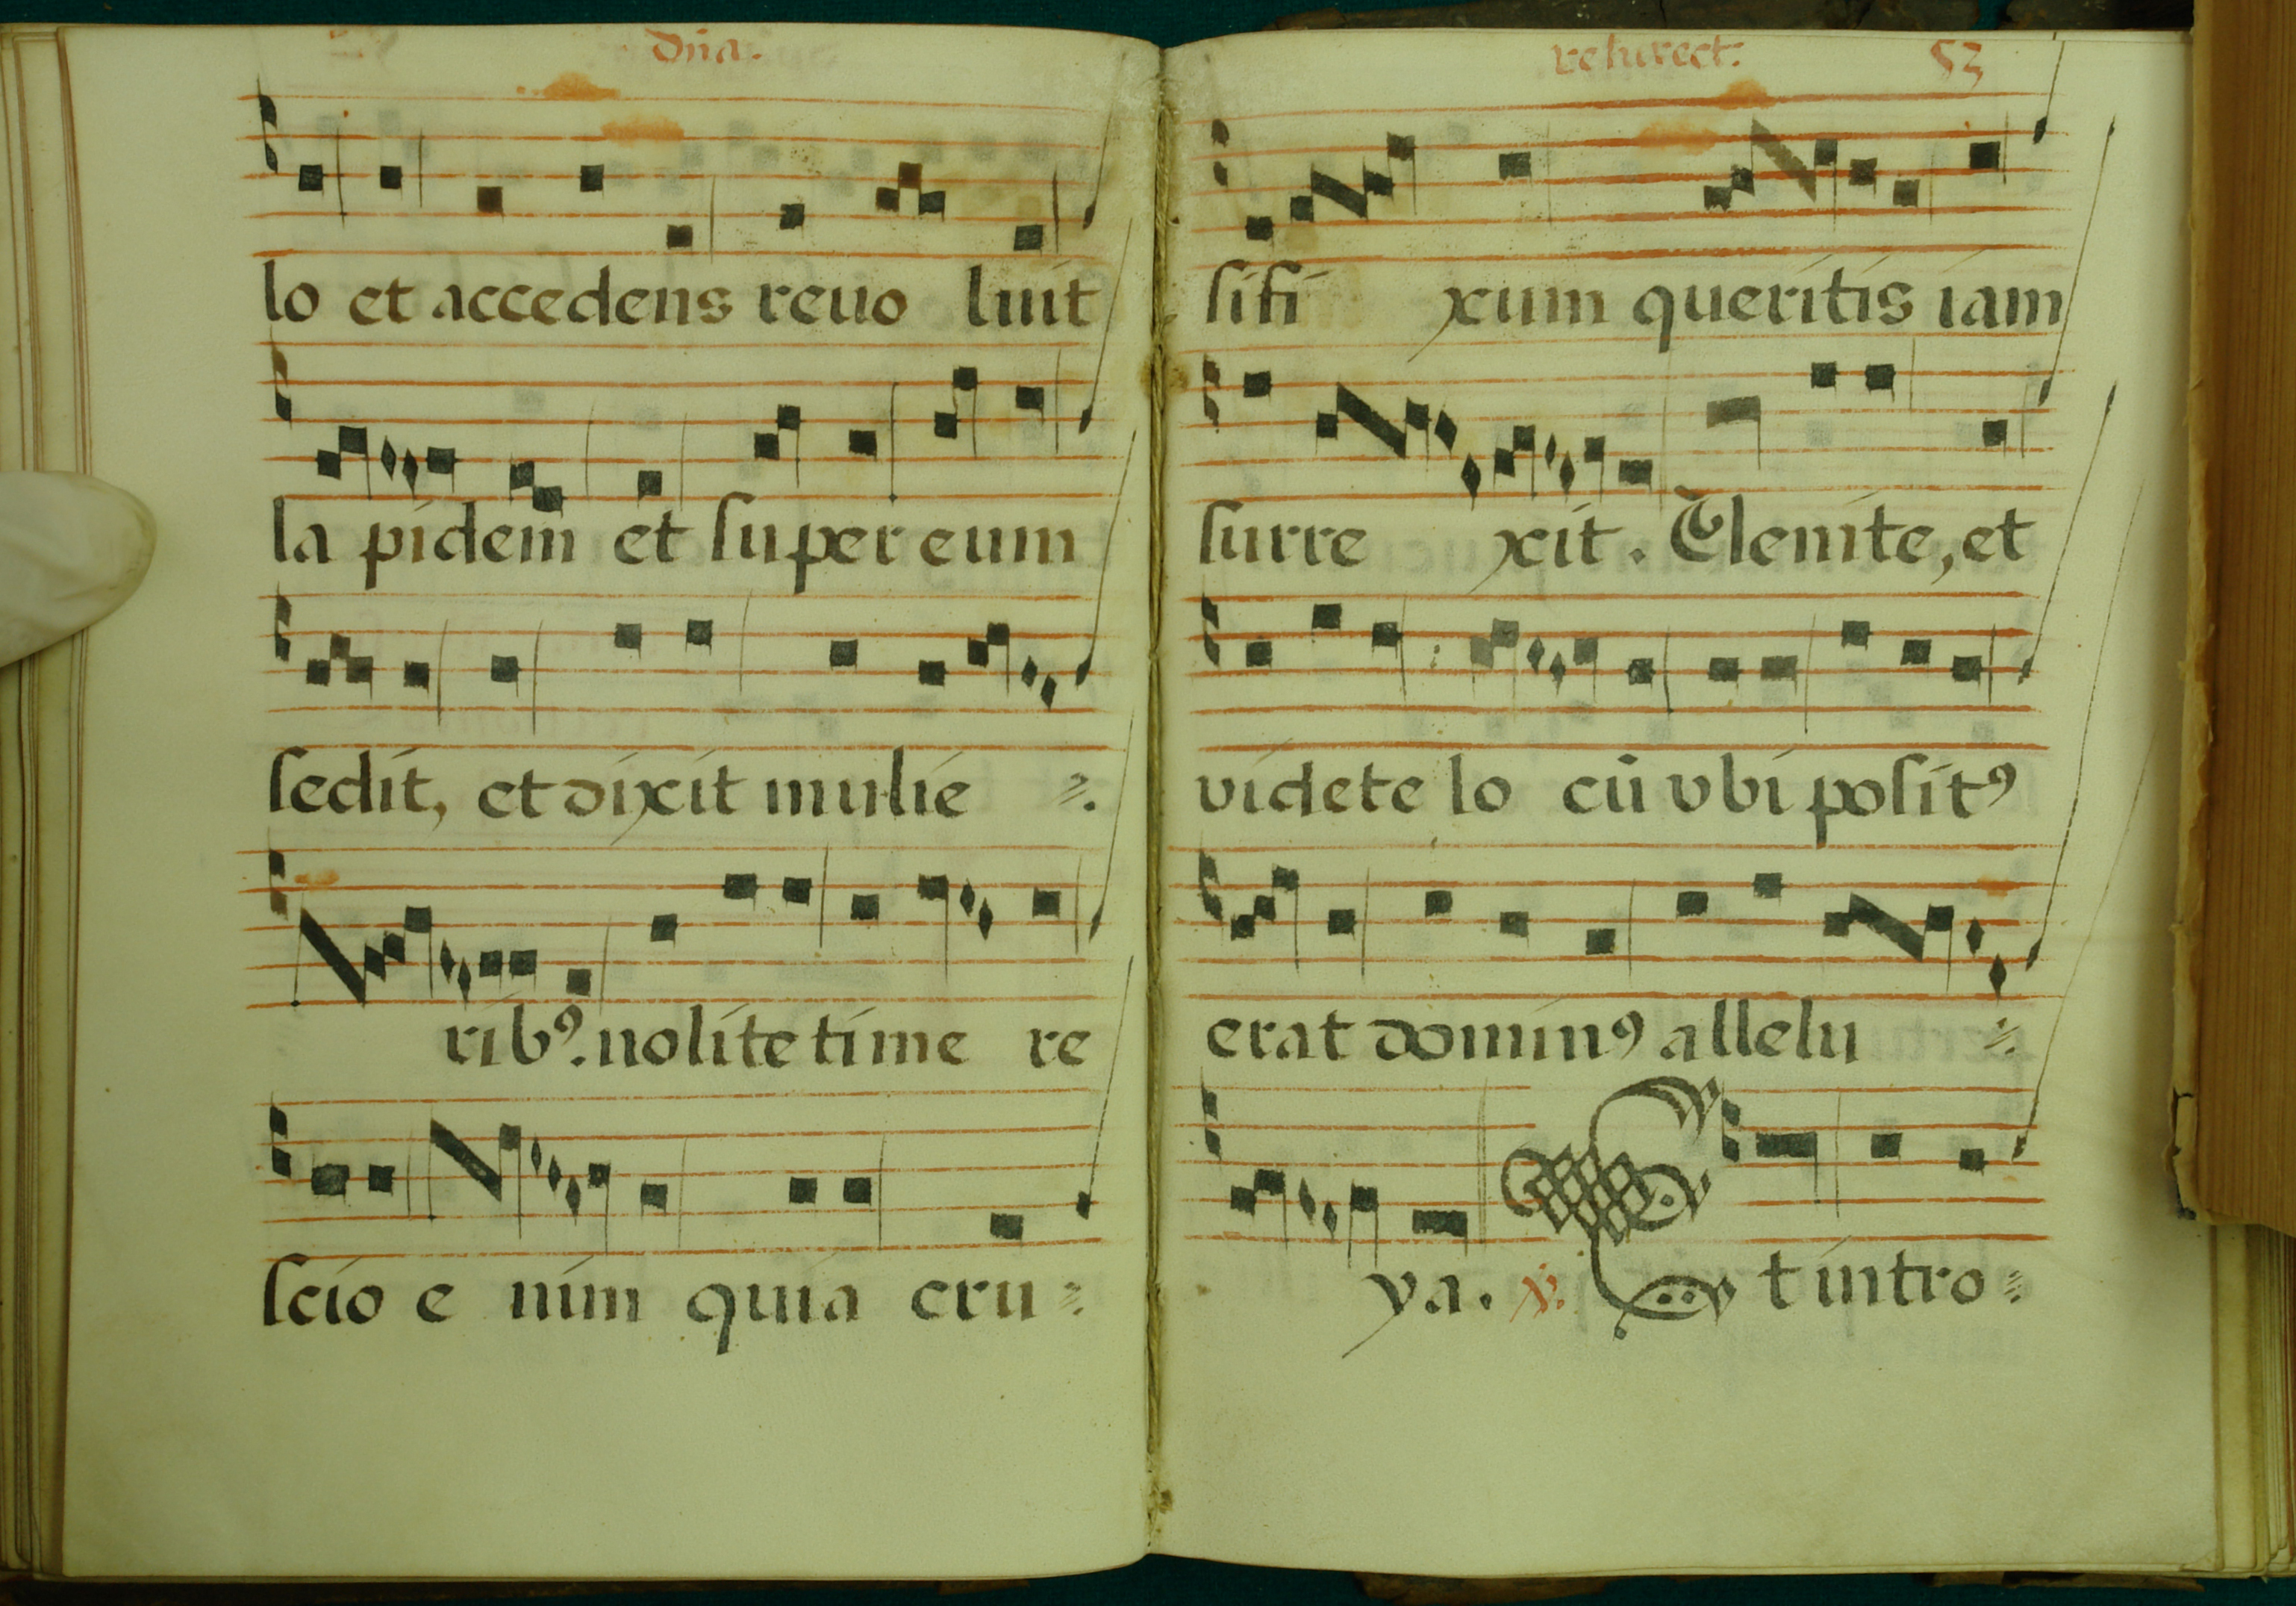 dña.
lo et accedens reuo luit
la pidem et super eum
sedit, et dixit mulie
ribꝰ. nolite time re
scio e nim quia cru
resurect. 53
sifi xum queritis iam
surre xit. Uenite, et
videte lo cū vbi positꝰ
erat dominꝰ allelu
ya. ꝟ. Et intro